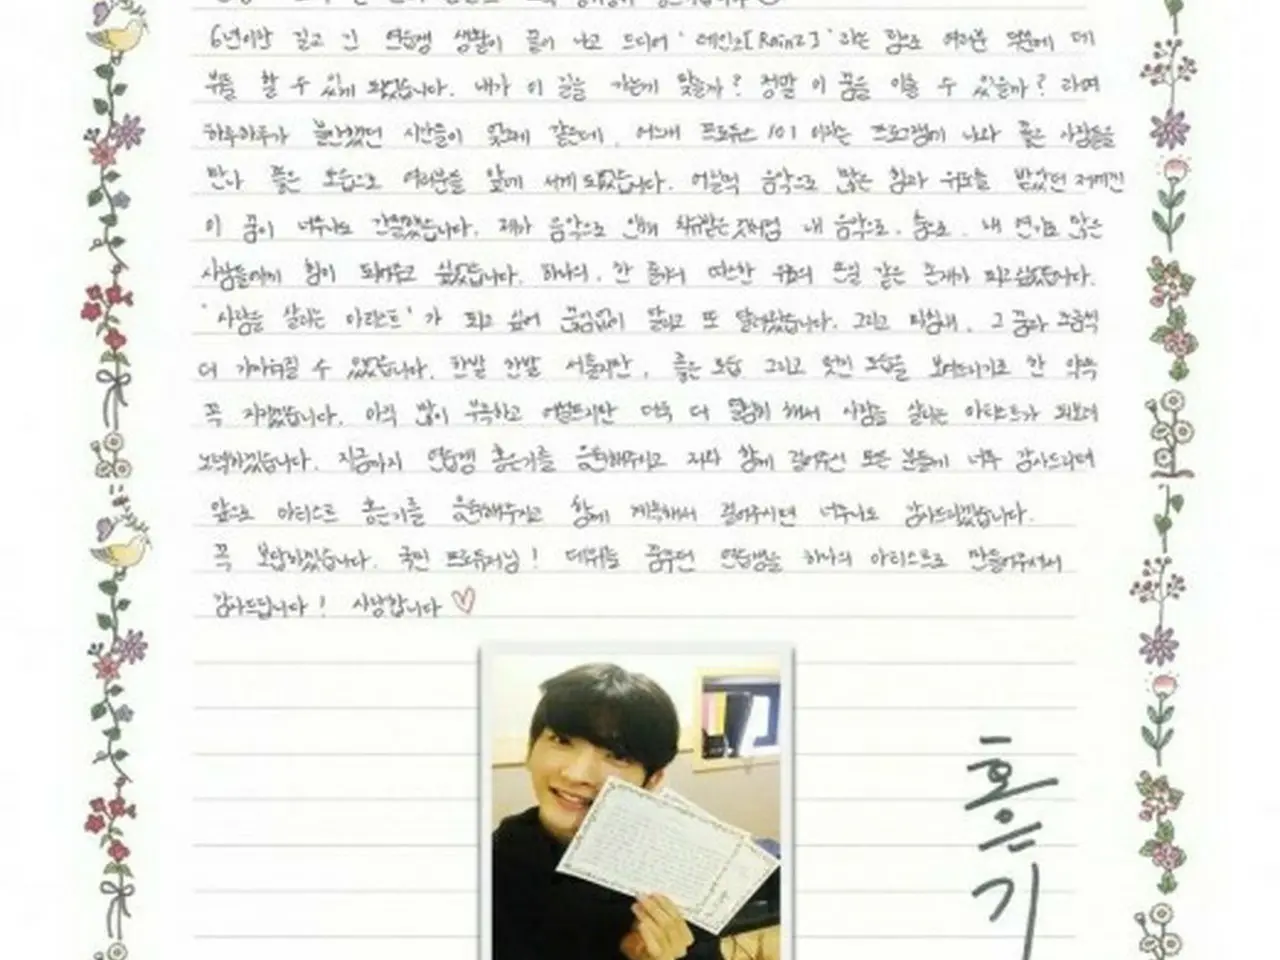 6년이란 길고 긴 연습생 생활이 끝이 나고 드디어 '레인즈[Rainz]' 라는 팀으로 여러분 덕분에 데
뷔를 할 수 있게 되었습니다. 내가 이 길을 가는게 맞을까? 정말 이 꿈을 이룰 수 있을까? 라며
하루하루가 불안했던 시간들이 엊그제 같은데, 어느새 프로듀스 101 이라는 프로그램에 나와 좋은 사람들을
만나 좋은 모습으로 여러분들 앞에 서게 되었습니다. 어릴적 음악으로 많은 힘과 위로를 받았던 저에겐
이 꿈이 너무나도 간절했습니다. 제가 음악으로 인해 치유받은것처럼 내 음악으로, 춤으로, 내 연기로 많은
사람들에게 힘이 되어주고 싶었습니다. 하나의, 한 줄기의 따스한 위로의 손길 같은 존재가 되고싶었습니다.
'사람을 살리는 아티스트'가 되고 싶어 끊임없이 달리고 또 달려왔습니다. 그리고 마침내, 그 꿈과 조금씩
더 가까워질 수 있었습니다. 한발 한발 서툴지만, 좋은 모습 그리고 멋진 모습을 보여드리기로 한 약속
꼭 지키겠습니다. 아직 많이 부족하고 어설프지만 더욱 더 열심히 해서 사람을 살리는 아티스트가 되도록
노력하겠습니다. 지금까지 연습생 홍은기를 응원해주시고 저와 함께 걸어주신 모든 분들께 너무 감사드리며
앞으로 아티스트 홍은기를 응원해주시고 함께 계속해서 걸어주시면 너무나도 감사드리겠습니다.
꼭 보답하겠습니다. 국민 프로듀서님! 데뷔를 꿈꾸던 연습생을 하나의 아티스트로 만들어주셔서
감사드립니다! 사랑합니다 ♡
홍은기